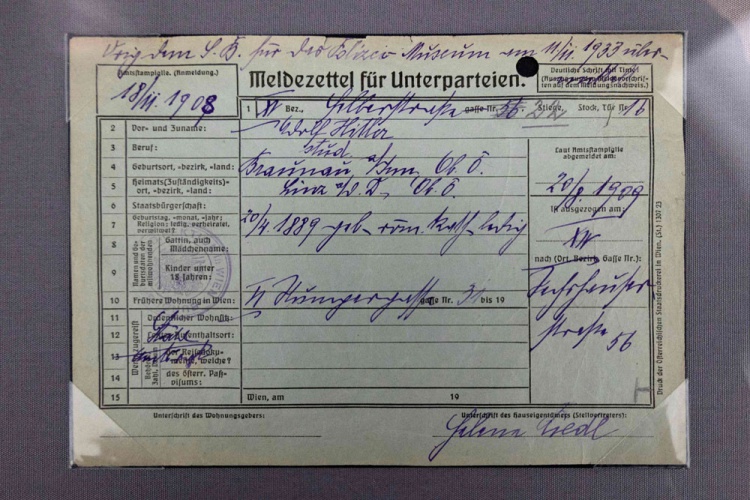 Orig dem S. B. für das Polizei Museum am 11/II. 1933 über-
Amtsstampiglie. (Anmeldung.)
18/II. 1908
Meldezettel für Unterparteien.
Deutliche Schrift mit Tinte!
1 XV Bez., Felberstraße Gasse Nr. 22 Stiege, Stock, Tür Nr. 16
2 Vor- und Zuname: Adolf Hitler
3 Beruf: Stud
4 Geburtsort, -bezirk, -land: Braunau a/Inn Ob. Ö.
5 Heimats(Zuständigkeits)-ort, -bezirk, -land: Linz a/d. D., Ob. Ö.
6 Staatsbürgerschaft:
7 Geburtstag, -monat, -jahr; Religion; ledig, verheiratet, verwitwet? 20/4. 1889 geb röm. kath ledig
8 Gattin, auch Mädchenname:
9 Kinder unter 18 Jahren:
10 Frühere Wohnung in Wien: VI Stumpergasse Gasse Nr. 31 bis 19
11 Ordentlicher Wohnsitz:
12
13
14 des österr. Paß-visums:
15 Wien, am 19
Laut Amtsstampiglie abgemeldet am:
20/8. 1909
Ist ausgezogen am:
XIV
nach (Ort, Bezirk, Gasse Nr.):
Sechshauser-
straße 56
Unterschrift des Wohnungsgebers:
Unterschrift des Hauseigentümers (Stellvertreters):
Helene Riedl
Druck der Österreichischen Staatsdruckerei in Wien. (St.) 1307 23